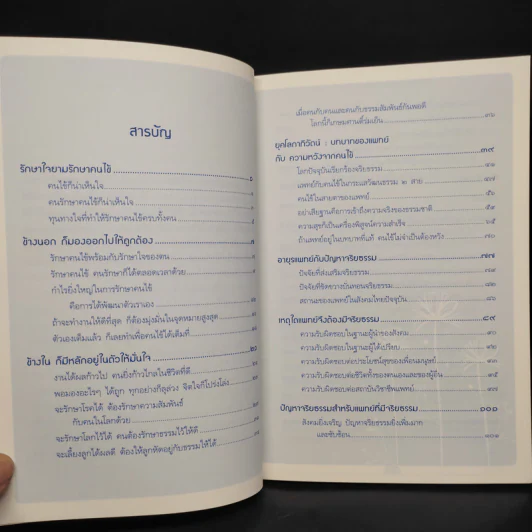 สารบัญ
รักษาใจยามรักษาคนไข้ ๑
คนไข้ก็น่าเห็นใจ
คนรักษาคนไข้ก็น่าเห็นใจ
ทุนทางใจที่ทำให้รักษาคนไข้ครบทั้งคน
ข้างนอก ก็มองออกไปให้ถูกต้อง ๗
รักษาคนไข้พร้อมกับรักษาใจของตน
รักษาคนไข้ คนรักษาก็ได้ตลอดเวลาด้วย
กำไรยิ่งใหญ่ในการรักษาคนไข้
คือการได้พัฒนาตัวเราเอง
ถ้าจะทำงานให้ดีที่สุด ก็ต้องมุ่งมั่นในจุดหมายสูงสุด
ตัวเองเต็มแล้ว ก็เลยทำเพื่อคนไข้ได้เต็มที่
ข้างใน ก็มีหลักอยู่ในตัวให้มั่นใจ ๒๑
งานได้ผลก้าวไป คนยิ่งก้าวไกลในชีวิตที่ดี
พอมองอะไรๆ ได้ถูก ทุกอย่างก็ลุล่วง จิตใจก็โปร่งโล่ง
จะรักษาโรคได้ ต้องรักษาความสัมพันธ์
กับคนในโลกด้วย
จะรักษาโลกไว้ได้ คนต้องรักษาธรรมไว้ให้ดี
จะเลี้ยงลูกได้ผลดี ต้องให้ลูกหัดอยู่กับธรรมให้ได้
เมื่อคนกับคนและคนกับธรรมสัมพันธ์กันพอดี
โลกนี้ก็เกษมศานติ์ร่มเย็น ๓๖
ยุคโลกาภิวัตน์ : บทบาทของแพทย์
กับ ความหวังจากคนไข้ ๓๙
โลกปัจจุบันเรียกร้องจริยธรรม ๔๑
แพทย์กับคนไข้ในกระแสวัฒนธรรม ๒ สาย ๔๗
คนไข้ในสายตาของแพทย์ ๕๒
อย่าเสียฐานคือการเข้าถึงความจริงของธรรมชาติ ๕๙
ความสุขก็เป็นเครื่องพิสูจน์ความสำเร็จ ๖๕
ถ้าแพทย์อยู่ในบทบาทที่แท้ คนไข้ไม่จำเป็นต้องหวัง ๗๐
อายุรแพทย์กับปัญหาจริยธรรม ๗๗
ปัจจัยที่ส่งเสริมจริยธรรม
ปัจจัยที่ขัดขวางบั่นทอนจริยธรรม
สถานะของแพทย์ในสังคมไทยปัจจุบัน
เหตุใดแพทย์จึงต้องมีจริยธรรม ๘๙
ความรับผิดชอบในฐานะผู้นำของสังคม
ความรับผิดชอบในฐานะผู้ได้เปรียบ
ความรับผิดชอบต่อประโยชน์สุขของเพื่อนมนุษย์
ความรับผิดชอบต่อชีวิตทั้งของตนเองและของผู้อื่น
ความรับผิดชอบต่อสถาบันวิชาชีพแพทย์
ปัญหาจริยธรรมสำหรับแพทย์ที่มีจริยธรรม ๑๐๑
สังคมยิ่งเจริญ ปัญหาจริยธรรมยิ่งเพิ่มมาก
และซับซ้อน ๑๐๑